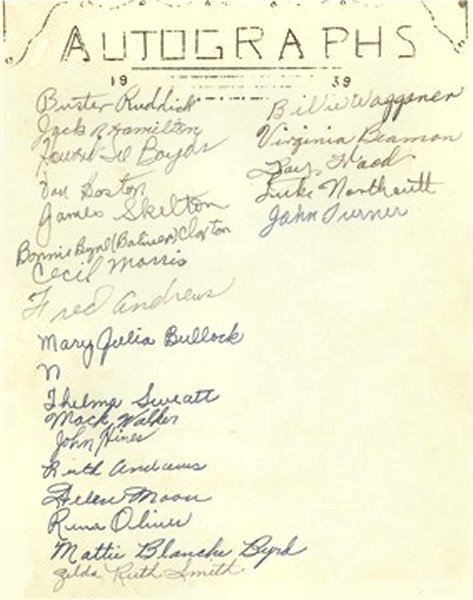 AUTOGRAPHS
19 39
Buster Ruddick
Jack R Hamilton
Howard Lee Boyds
Van Boston
James Skelton
Bonnie Byrd (Batiner) Claxton
Cecil Morris
Fred Andrews
Mary Julia Bullock
N
Thelma Sweatt
Mack Walker
John Hines
Ruth Andrews
Helen Moon
Runa Oliver
Mattie Blanche Byrd
Zelda Ruth Smith
Billie Waggoner
Virginia Beamon
Wood
Luke Northcutt
John Turner